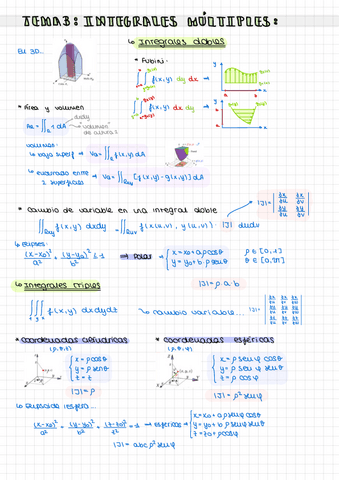 TEMA 3: INTEGRALES MÚLTIPLES:
↳ Integrales dobles
En 3D...
• Fubini:
∫∫ f(x,y) dy dx →
∫∫ f(x,y) dx dy →
• Área y volumen
dxdy
AR = ∬R 1 dA
volumen de altura 1
volumen:
↳ bajo superf → Va = ∬R f(x,y) dA
↳ encerrado entre 2 superficies → Va = ∬Rxy [f(x,y) - g(x,y)] dA
• cambio de variable en una integral doble
|J| = | ∂x/∂u ∂x/∂v ; ∂y/∂u ∂y/∂v |
∬Rxy f(x,y) dxdy = ∬Ruv f(x(u,v), y(u,v)) · |J| dudv
↳ Elipses:
(x-x0)²/a² + (y-y0)²/b² ≤ 1 → Polar → { x = x0 + a ρ cosθ ; y = y0 + b ρ senθ
ρ ∈ [0,1]
θ ∈ [0,2π]
|J| = ρ·a·b
↳ Integrales triples
∭ f(x,y) dxdydz
↳ cambio variable... |J| =
• coordenadas cilíndricas
(ρ,θ,z)
{ x = ρ cosθ
y = ρ senθ
z = z
|J| = ρ
• coordenadas esféricas
(ρ,θ,φ)
{ x = ρ senφ cosθ
y = ρ senφ senθ
z = ρ cosφ
|J| = ρ² senφ
(x-x0)²/a² + (y-y0)²/b² + (z-z0)²/c² = 1 → esféricas → { x = x0 + a ρ senφ cosθ
y = y0 + b ρ senφ senθ
z = z0 + c ρ cosφ
|J| = abc ρ² senφ